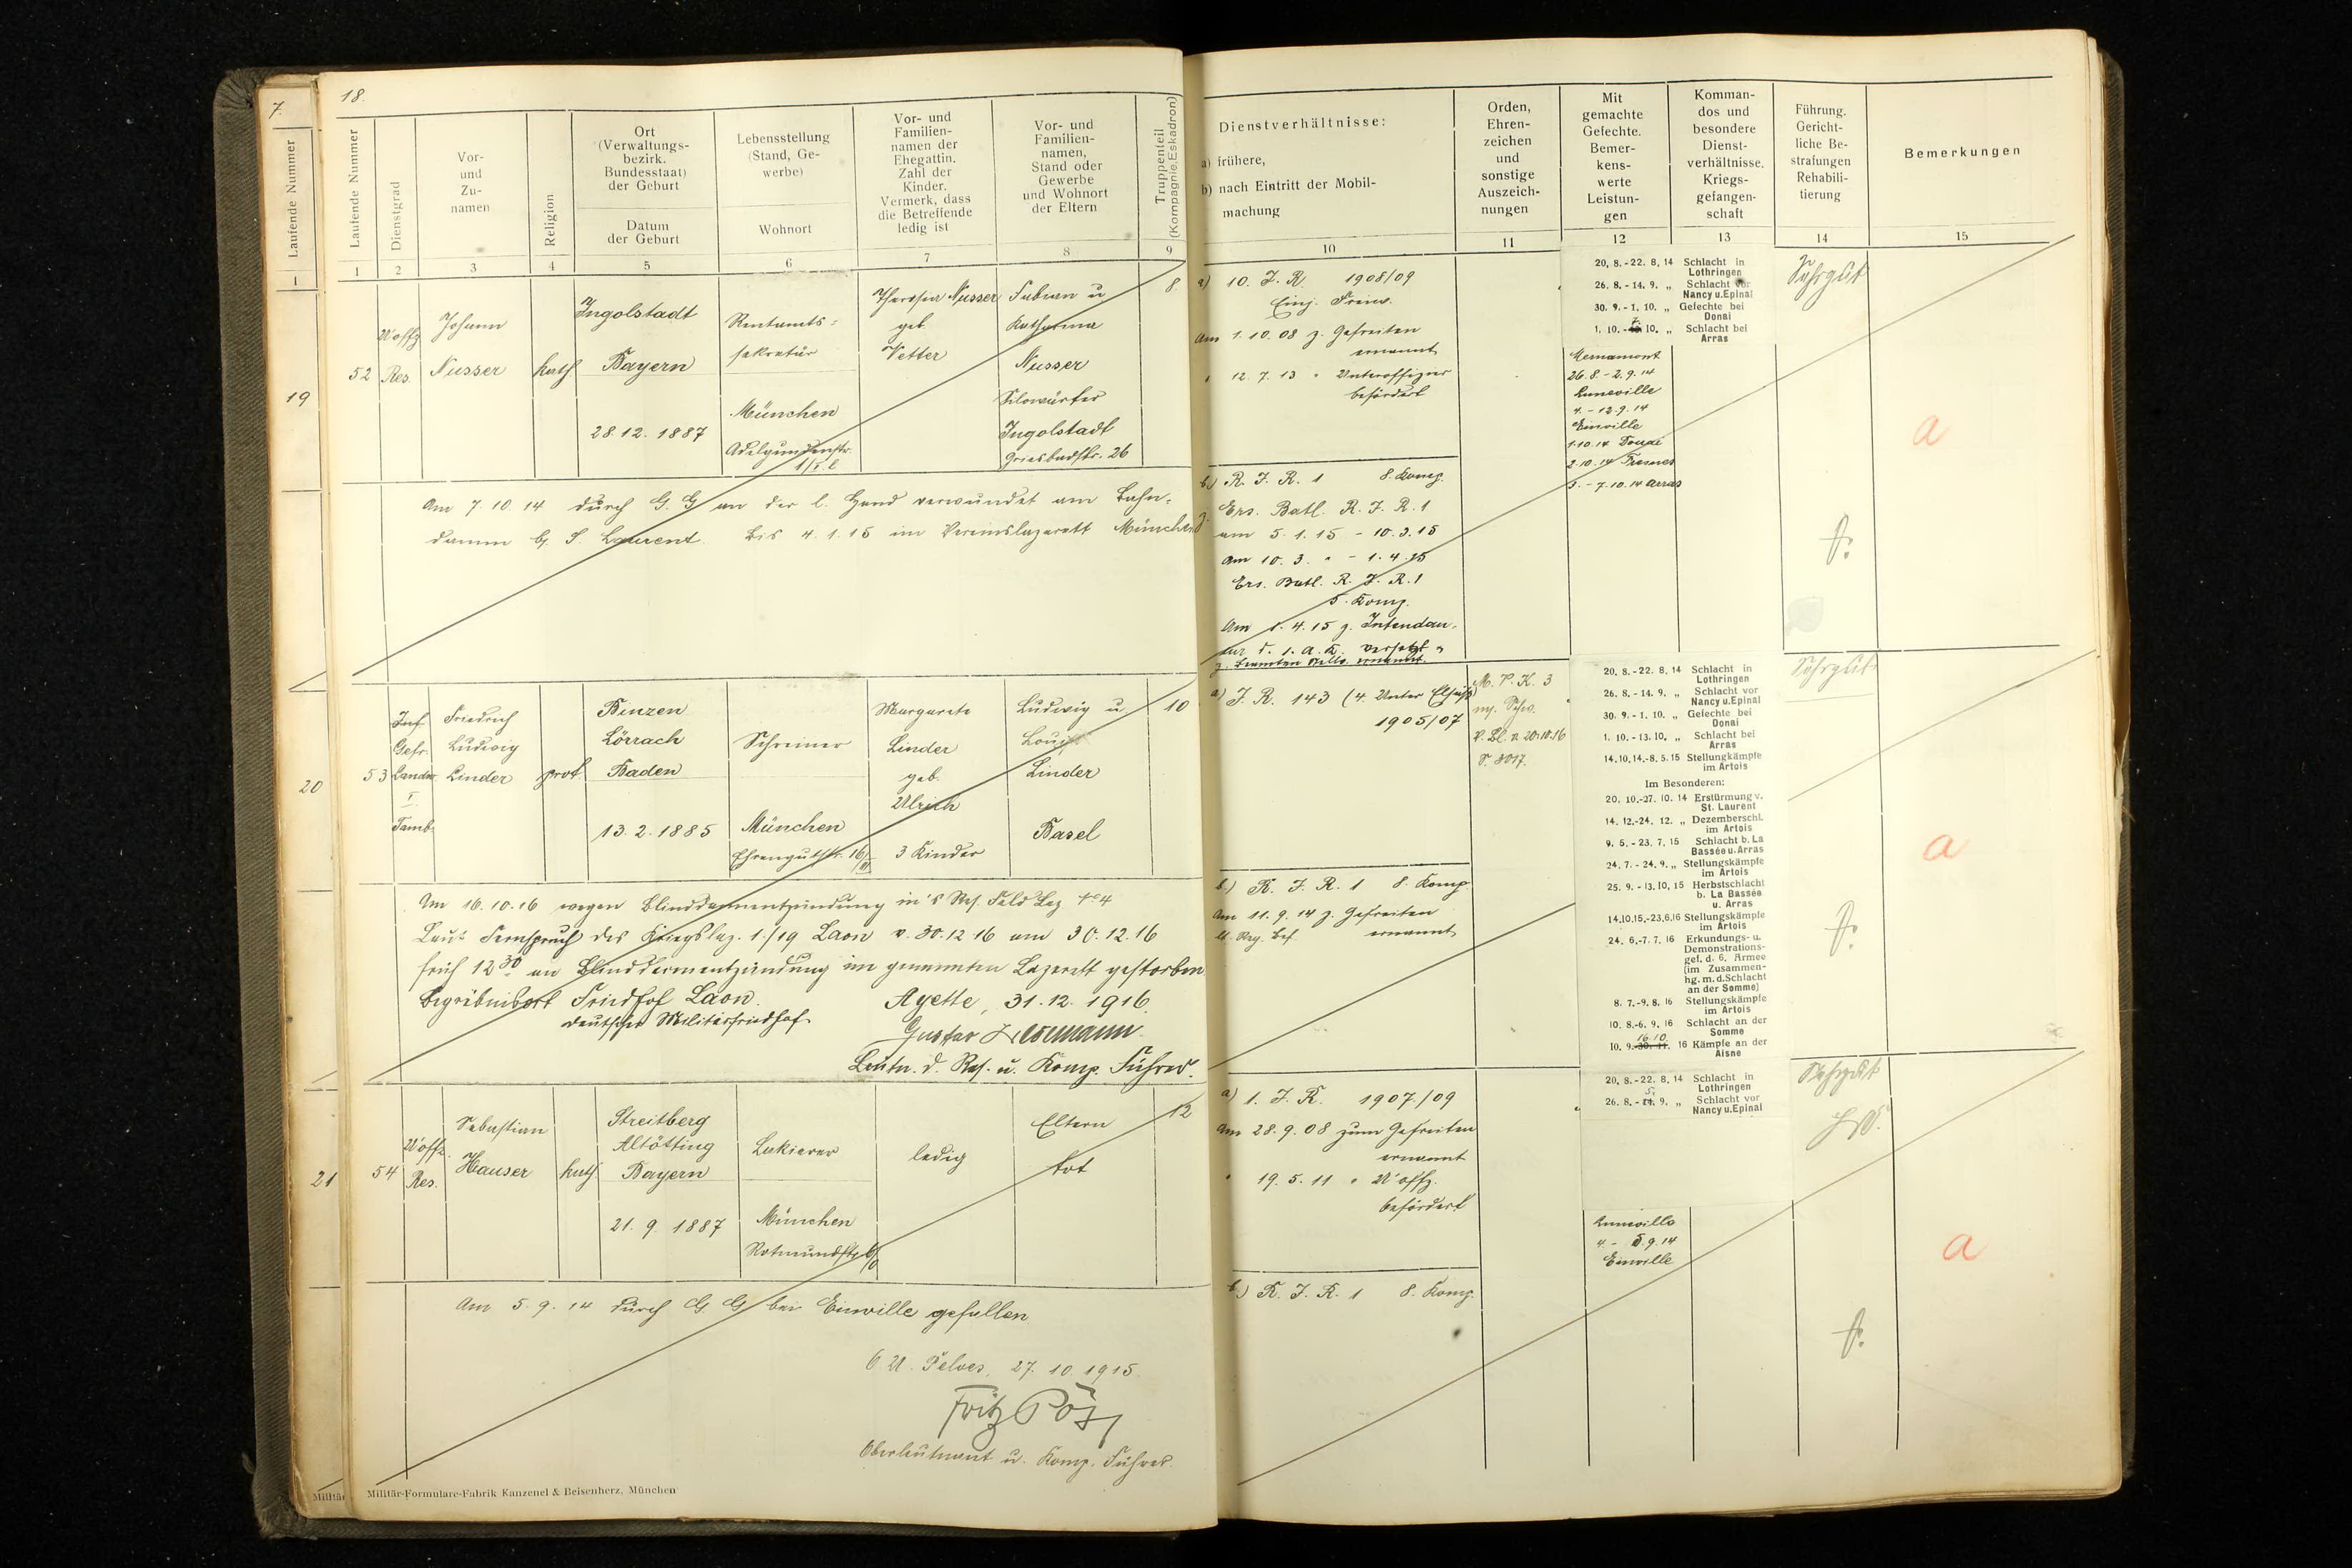 7.
Laufende Nummer
1
19
20
21
Militär
18.
Laufende Nummer
Dienstgrad
Vor-
und
Zu-
namen
Religion
Ort
(Verwaltungs-
bezirk.
Bundesstaat)
der Geburt
Datum
der Geburt
Lebensstellung
(Stand, Ge-
werbe)
Wohnort
Vor- und
Familien-
namen der
Ehegattin.
Zahl der
Kinder.
Vermerk, dass
die Betreffende
ledig ist
Vor- und
Familien-
namen,
Stand oder
Gewerbe
und Wohnort
der Eltern
Truppenteil
(Kompagnie, Eskadron)
1 2 3 4 5 6 7 8 9
52
Uoffz
Res.
Johann
Nusser
kath
Ingolstadt
Bayern
28.12.1887
Rentamts-
sekretär
München
Adelgundenstr.
Theresia Nusser
geb.
Vetter
Fabian u
Katharina
Nusser
Ingolstadt
Griesbadstr. 26
8.
Am 7.10.14 durch G.G. an der l. Hand verwundet am Bahn-
damm b. S. Laurent. Bis 4.1.15 im Vereinslazarett München
53
Inf
Gefr.
Landw.
I
Tamb.
Friedrich
Ludwig
Linder
prot
Binzen
Lörrach
Baden
13.2.1885
Schreiner
München
Ehrengutstr. 16/III
Margarete
Linder
geb.
Ulrich
3 Kinder
Ludwig u
Louise
Linder
Basel
10
Am 16.10.16 wegen Blinddarmentzündung in's Res. Feld Laz No 4
Laut Fernspruch des Kriegslaz. 1/19 Laon v. 30.12.16 am 30.12.16
früh 12 30 an Blinddarmentzündung im genannten Lazarett gestorben
Begräbnisort Friedhof Laon.
deutscher Militärfriedhof.
Ayette, 31.12.1916.
Gustav
Leutn. d. Res. u. Komp. Führer.
54
Uoffz.
Res.
Sebastian
Hauser
kath.
Streitberg
Altötting
Bayern
21.9.1887
Lakierer
München
Rotmundstr. 6/0
ledig
Eltern
tot
12
Am 5.9.14 durch G.G. bei Einville gefallen
O.U. Pelves, 27.10.1915.
Fritz
Oberleutnant u. Komp. Führer.
Militär-Formulare-Fabrik Kanzenel & Beisenherz, München
Dienstverhältnisse:
a) frühere,
b) nach Eintritt der Mobil-
machung
Orden,
Ehren-
zeichen
und
sonstige
Auszeich-
nungen
Mit
gemachte
Gefechte.
Bemer-
kens-
werte
Leistun-
gen
Komman-
dos und
besondere
Dienst-
verhältnisse.
Kriegs-
gefangen-
schaft
Führung.
Gericht-
liche Be-
strafungen
Rehabili-
tierung
Bemerkungen
10 11 12 13 14 15
a) 10. J.R. 1908/09
Einj. Freiw.
Am 1.10.08 z. Gefreiten
ernannt
" 12.7.13 " Unteroffizier
befördert
b) R.J.R. 1 8. Komp.
Ers. Batl. R.J.R. 1
am 5.1.15 - 10.3.15
Am 10.3. " - 1.4.15
Ers. Batl. R.J.R. 1
5. Komp.
Am 1.4.15 z. Intendan-
tur d. 1. A.K. versetzt u
z. Beamten Stellv. ernannt.
20. 8.-22. 8. 14 Schlacht in
Lothringen
26. 8.-14. 9. „ Schlacht vor
Nancy u. Epinal
30. 9.-1. 10. „ Gefechte bei
Donai
1. 10.- 7. 10. „ Schlacht bei
Arras
26.8.-2.9.14
Luneville
4.-12.9.14
Einville
1.10.14 Douai
2.10.14 Fresnes
3.-7.10.14 Arras
Sehr gut
a
a) J.R. 143 (4. Unter Elsäss)
1905/07
b.) R.J.R. 1 8. Komp
Am 11.9.14 z. Gefreiten
lt. Reg. Bef. ernannt
M.V.K. 3
m. Schw.
V. Bl. v. 20.10.16
S. 3017.
20. 8.-22. 8. 14 Schlacht in
Lothringen
26. 8.-14. 9. „ Schlacht vor
Nancy u. Epinal
30. 9.-1. 10. „ Gefechte bei
Donai
1. 10.-13. 10. „ Schlacht bei
Arras
14. 10. 14.-8. 5. 15 Stellungkämpfe
im Artois
Im Besonderen:
20. 10.-27. 10. 14 Erstürmung v.
St. Laurent
14. 12.-24. 12. „ Dezemberschl.
im Artois
9. 5.-23. 7. 15 Schlacht b. La
Bassée u. Arras
24. 7.-24. 9. „ Stellungskämpfe
im Artois
25. 9.-13. 10. 15 Herbstschlacht
b. La Bassée
u. Arras
14.10.15.-23.6.16 Stellungskämpfe
im Artois
24. 6.-7. 7. 16 Erkundungs- u.
Demonstrations-
gef. d. 6. Armee
(im Zusammen-
hg. m. d. Schlacht
an der Somme)
8. 7.-9. 8. 16 Stellungskämpfe
im Artois
10. 8.-6. 9. 16 Schlacht an der
Somme
16.10.
10. 9.-30. 11. 16 Kämpfe an der
Aisne
Sehr gut
a
a) 1. J.R. 1907/09
Am 28.9.08 zum Gefreiten
ernannt
" 19.5.11 " Uoffz.
befördert
b.) R.J.R. 1 8. Komp.
20. 8.-22. 8. 14 Schlacht in
Lothringen
5.
26. 8.-14. 9. „ Schlacht vor
Nancy u. Epinal
Luneville
4.-5.9.14
Einville
Sehr gut
a